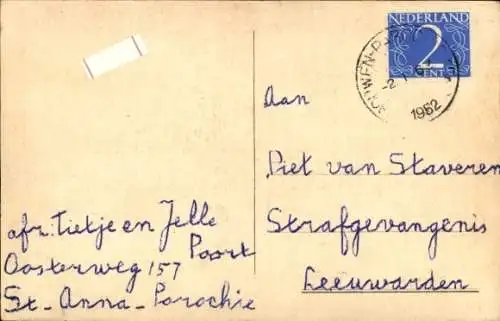 NEDERLAND
2
CENT
1952
Aan
Piet van Staveren
Strafgevangenis
Leeuwarden
afz: Tietje en Jelle
Poort
Oosterweg 157
St-Anna-Parochie